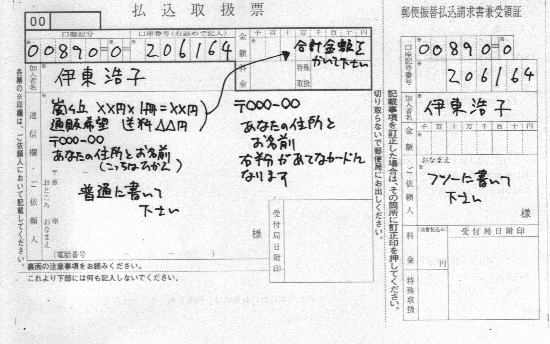 払込取扱票
00
口座記号
口座番号(右詰めで記入)
00890=0=206164
金額
千 百 十 万 千 百 十 円
合計金額を
かいて下さい
料金
特殊取扱
加入者名
伊東浩子
通信欄・ご依頼人
XX円×1冊=XX円
通販希望 送料△△円
〒000-00
あなたの住所とお名前
普通に書いて
下さい
おところ
おなまえ
様
(電話番号
〒000-00
あなたの住所と
お名前
なります
受付局日附印
裏面の注意事項をお読みください。
これより下部には何も記入しないでください。
各票の※印欄は、ご依頼人において記載してください。
切り取らないで郵便局にお出しください。
記載事項を訂正した場合は、その箇所に訂正印を押してください。
郵便振替払込請求書兼受領証
口座記号番号
00890=0
206164
加入者名
伊東浩子
金額
千 百 十 万 千 百 十 円
ご依頼人
おなまえ
フツーに書いて
下さい
様
料金
円
受付局日附印
特殊取扱